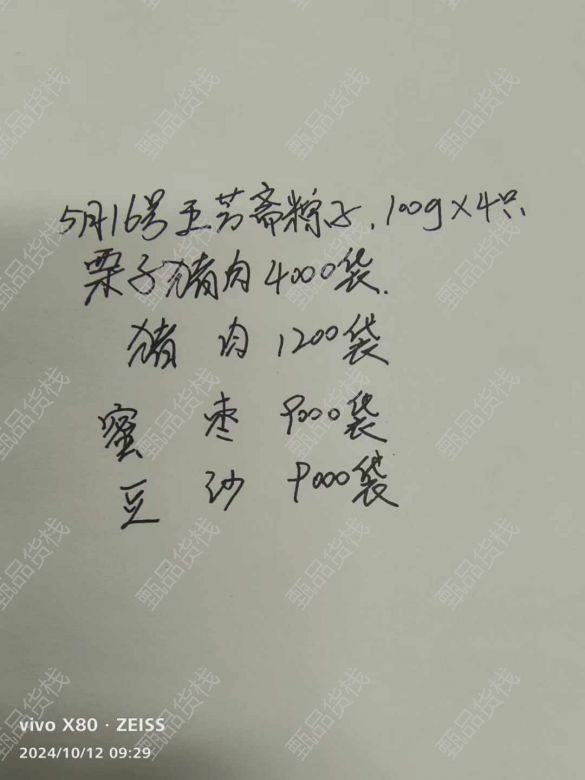 5月16号五芳斋粽子.100g×4只
栗子猪肉4000袋.
猪肉1200袋
蜜枣9000袋
豆沙9000袋
vivo X80 · ZEISS
2024/10/12 09:29
甄品货栈